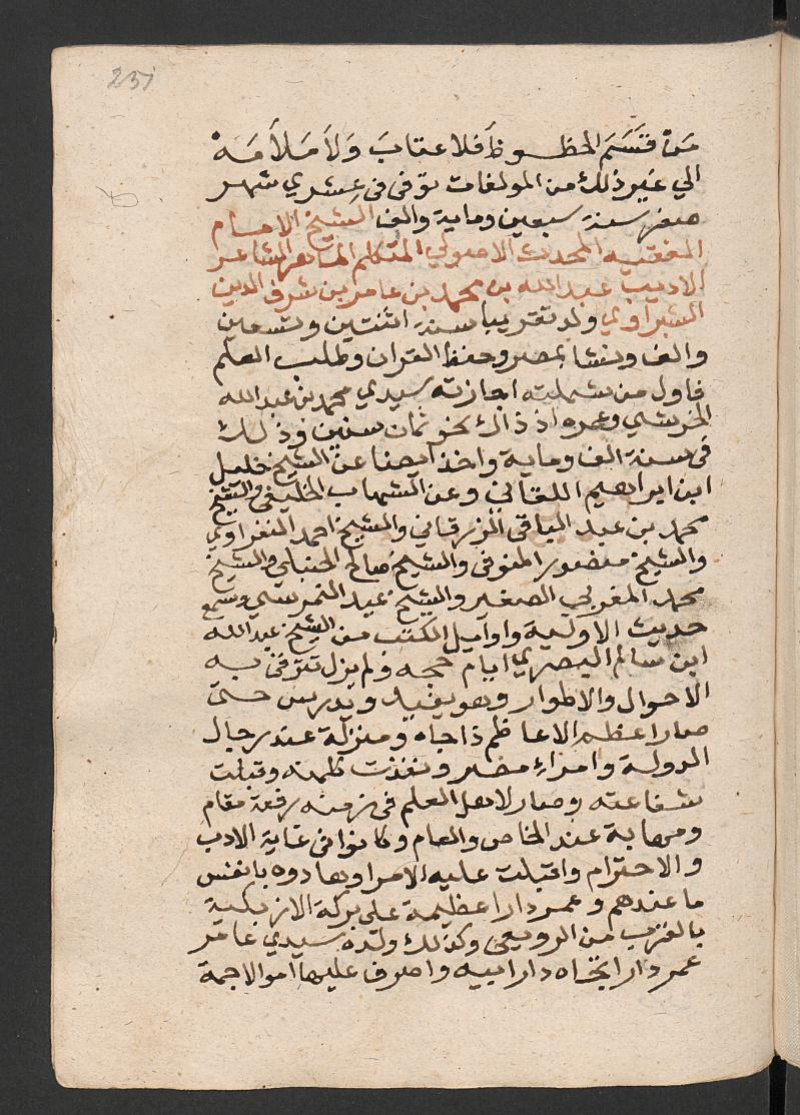 231
مَنْ قَسَمَ الحظوظ فَلا عتابَ وَلاَ مَلاَمَهْ
الي غير ذلك من المولفات توفى فى عشري شهر
صفر سنة سبعين وماية والف الشيخ الامام
الفقيه المحدث الاصولي المتكلم الماهر الشاعر
الاديب عبد الله بن محمد بن عامر بن شرف الدين
الشبراوي ولد تقريبا سنة اثنتين وتسعين
والف ونشا بمصر وحفظ القران وطلب العلم
فاول من شملته اجازته سيدي محمد بن عبد الله
الخرشي وعمره اذ ذاك نحو ثمان سنين وذلك
فى سنة الف وماية واخذ ايضا عن الشيخ خليل
ابن ابراهيم اللقاني وعن الشهاب الخليفي والشيخ
محمد بن عبد الباقى الزرقاني والشيخ احمد النفراوي
والشيخ منصور المنوفى والشيخ صالح الحنبلي والشيخ
محمد المغربي الصغير والشيخ عيد النمرسي وسمع
حديث الاولية واوايل الكتب من الشيخ عبد الله
ابن سالم البصري ايام حجه ولم يزل تترقى به
الاحوال والاطوار وهو يفيد ويدرس حتى
صار اعظم الاعاظم ذا جاه ومنزلة عند رجال
الدولة وامراء مصر ونفذت كلمته وقبلت
شفاعته وصار لاهل العلم فى زمنه رفعة مقام
ومهابة عند الخاص والعام وكانوا فى غاية الادب
والاحترام واقبلت عليه الامرا وهادوه بانفس
ما عندهم وعمر دارا عظيمة على بركة الازبكية
بالقرب من الرويعى وكذلك ولده سيدي عامر
عمر دارا تجاه دار ابيه واصرف عليها اموالا جمة